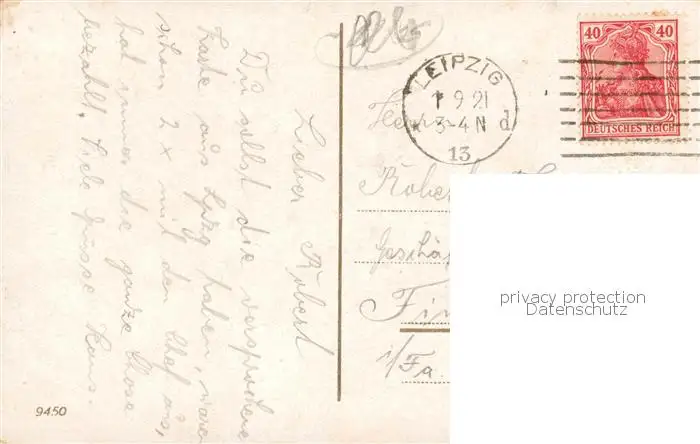 Lieber Robert
Du sollst die versprochene
Karte aus Lpzg haben, waren
schon 2 x mit dem Chef aus,
hat immer die ganze Chose
bezahlt. Viele Grüsse Hans.
9450
LEIPZIG
7 9 21
* 3-4 N d
13
40 40
DEUTSCHES REICH
Herrn
Robert
Geschäf
Fin
i/Fa.
privacy protection
Datenschutz